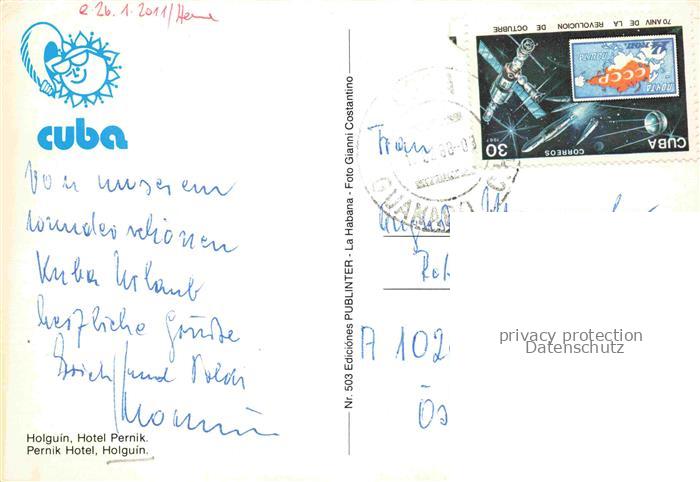 e 26.1.2011/
cuba
Von unserem
wunderschönen
Kuba Urlaub
herzliche Grüße
Erich und Poldi
Holguín, Hotel Pernik.
Pernik Hotel, Holguín.
Nr. 503 Ediciónes PUBLINTER - La Habana - Foto Gianni Costantino
70 ANIV DE LA REVOLUCION DE OCTUBRE
ПОЧТА
СССР
CUBA
CORREOS
1987
30
Frau
A 102
Ös
privacy protection
Datenschutz